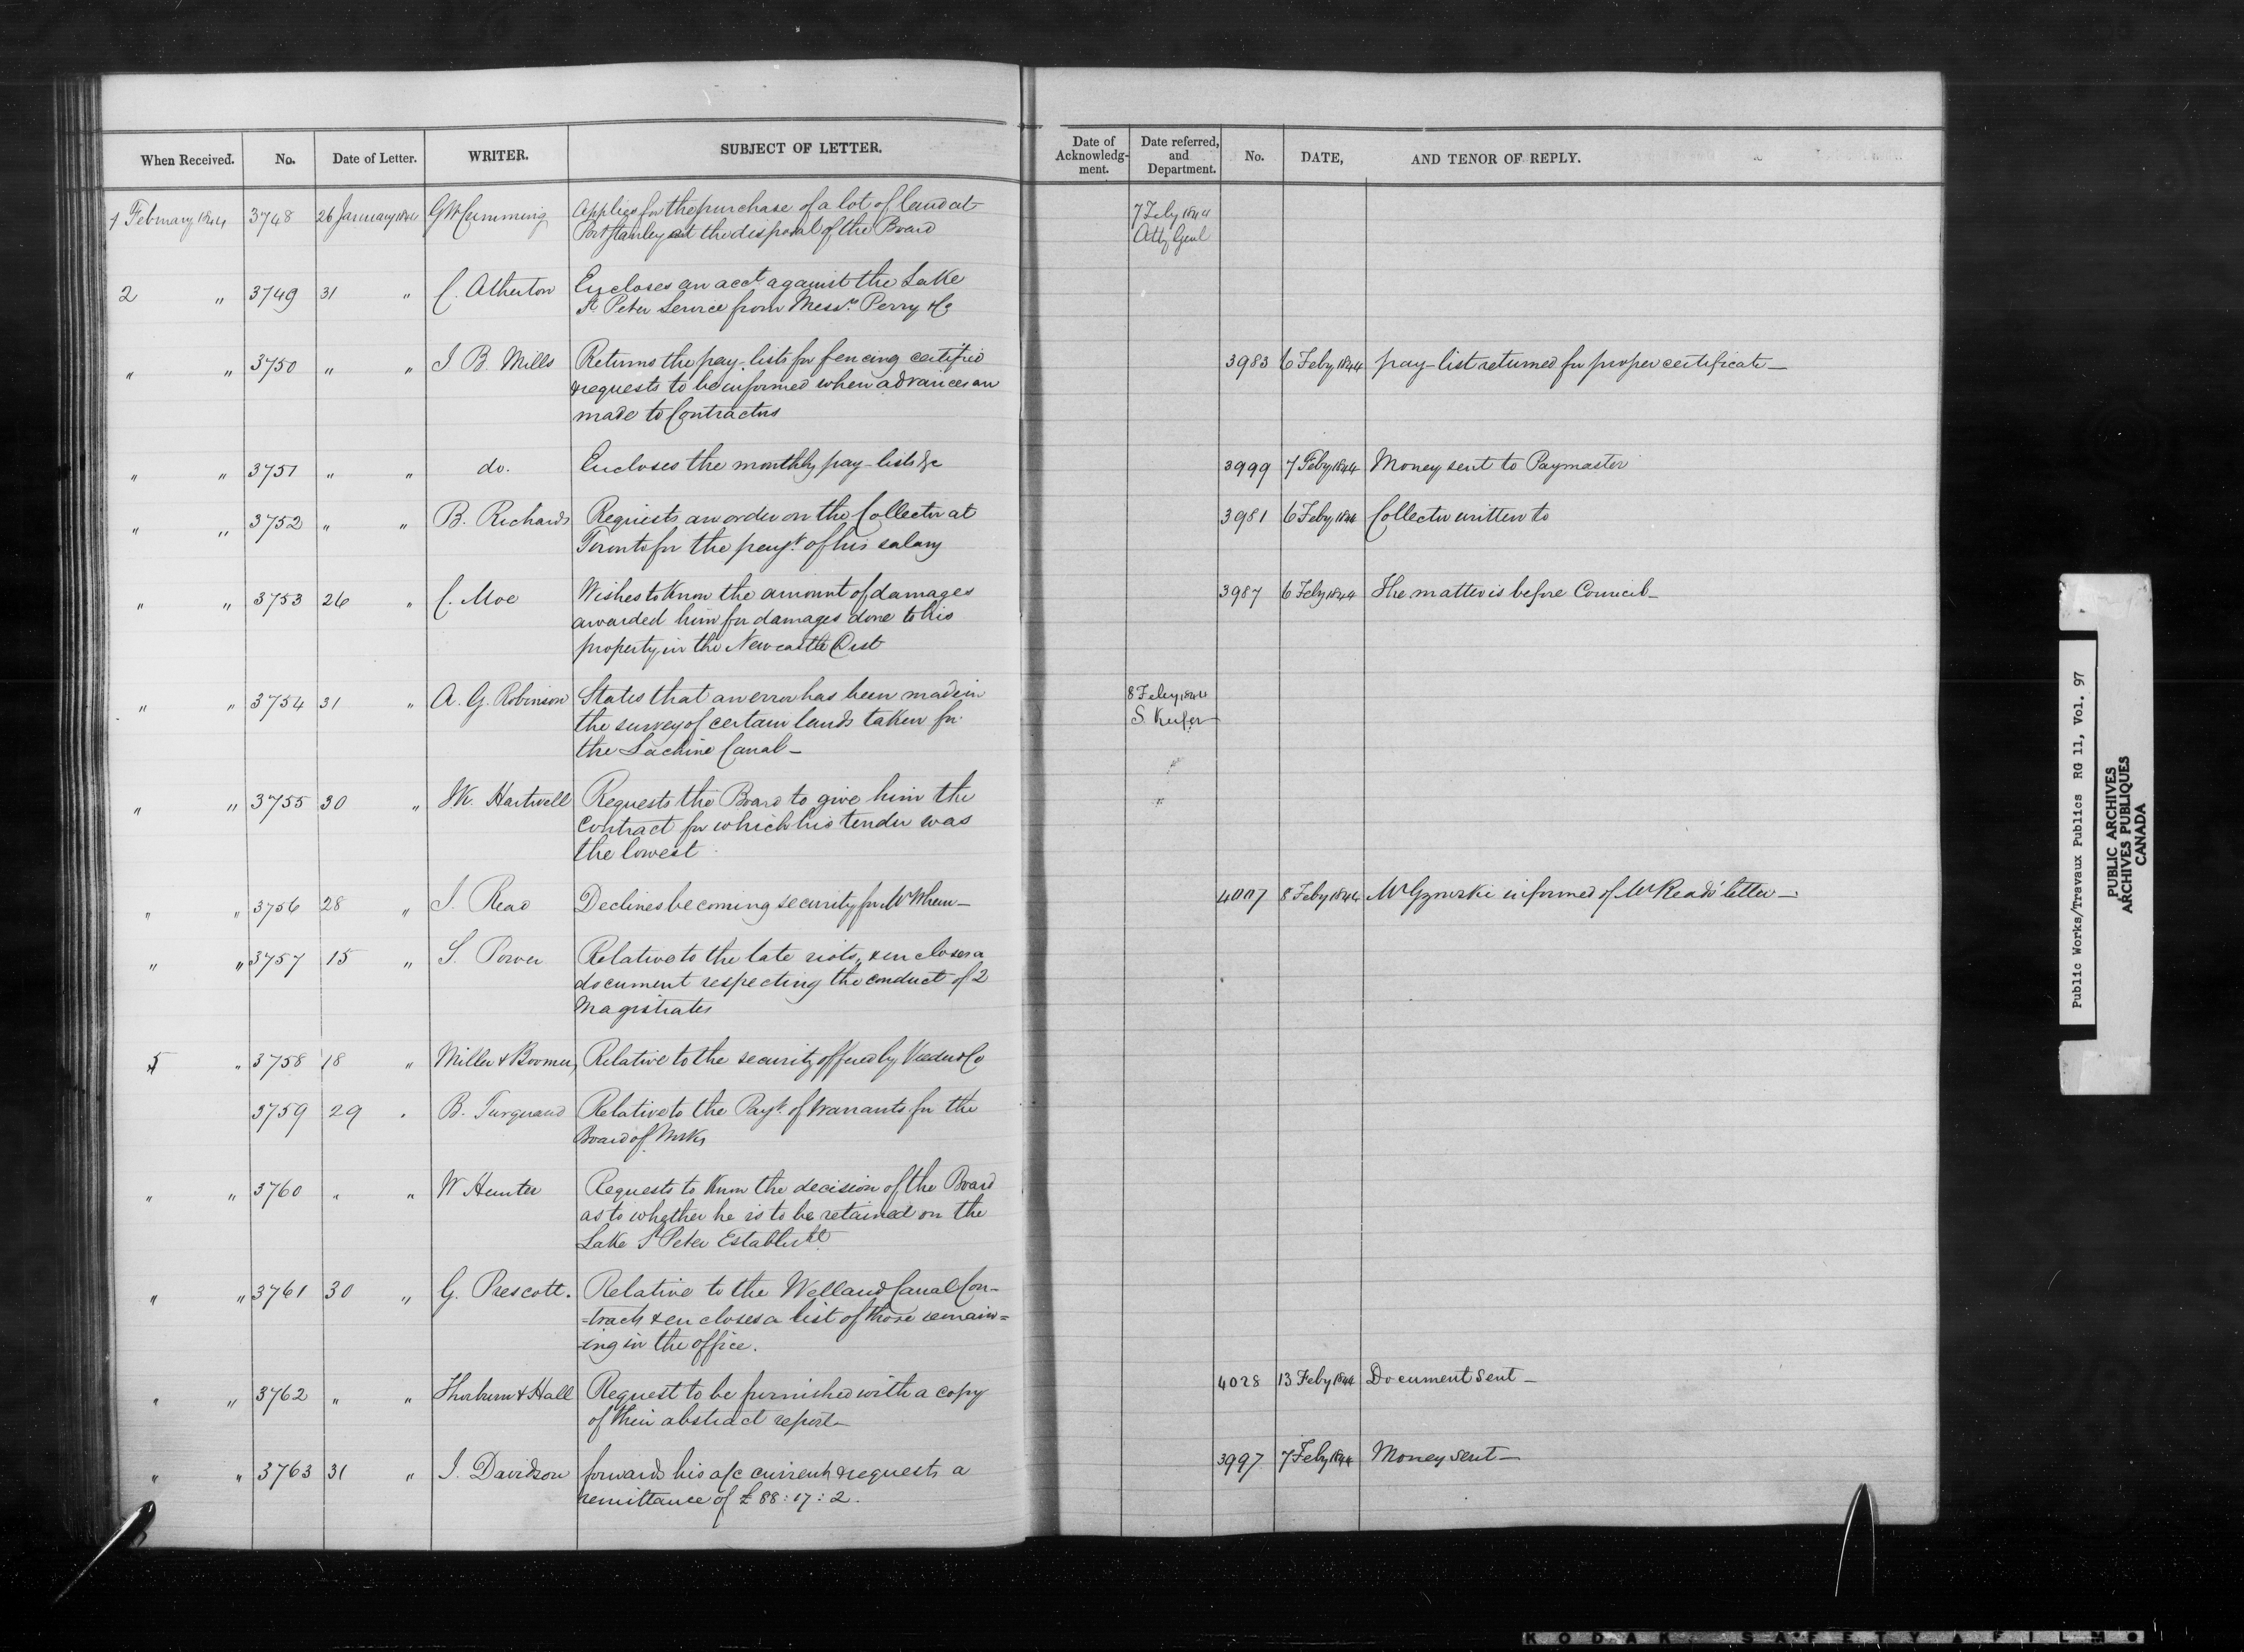 When Received. No. Date of Letter. WRITER. SUBJECT OF LETTER. Date of Acknowledg-ment. Date referred, and Department. No. DATE, AND TENOR OF REPLY.
1 February 1844 3748 26 January 1844 G W Cumming Applies for the purchase of a lot of land at 7 Feby 1844
Port Stanley at the disposal of the Board Atty Genl
2 " 3749 31 " C. Atherton Encloses an acct against the Lake
St Peter Service from Messrs Perry & Co
" " 3750 " " J B. Mills Returns the pay lists for fencing certified 3983 6 Feby 1844 pay-list returned for proper certificate —
& requests to be informed when advances are
made to Contractors
" " 3751 " " do. Encloses the monthly pay-lists &c 3999 7 Feby 1844 Money sent to Paymaster
" " 3752 " " B. Richards Requests an order on the Collector at 3981 6 Feby 1844 Collector written to
Toronto for the payt of his salary
" " 3753 26 " C. Moe Wishes to know the amount of damages 3987 6 Feby 1844 The matter is before Council —
awarded him for damages done to his
property in the Newcastle Dist
" " 3754 31 " A. G. Robinson States that an error has been made in 8 Feby 1844
the survey of certain lands taken for S. Keefer
the Lachine Canal —
" " 3755 30 " Hartwell Requests the Board to give him the
contract for which his tender was
the lowest
" " 3756 28 " J. Read Declines becoming security for Mr 4007 8 Feby 1844 Mr Gzowski informed of Mr Read's letter —
" " 3757 15 " S. Power Relative to the late riots, & encloses a
document respecting the conduct of 2
Magistrates
5 " 3758 18 " Miller & Boomer, Relative to the security offered by & Co
3759 29 " B. Turquand Relative to the Payt of warrants for the
Board of Works
" " 3760 " " W Hunter Requests to know the decision of the Board
as to whether he is to be retained on the
Lake St Peter Establisht
" " 3761 30 " G. Prescott. Relative to the Welland Canal Con-
-tracts & encloses a list of those remain=
-ing in the office.
" " 3762 " " Thorburn & Hall Request to be furnished with a copy 4028 13 Feby 1844 Document sent —
of their abstract report —
" " 3763 31 " J. Davidson forwards his a/c current & requests a 3997 7 Feby 1844 Money sent —
remittance of £ 88 : 17 : 2.
Public Works/Travaux Publics RG 11, Vol. 97
PUBLIC ARCHIVES
ARCHIVES PUBLIQUES
CANADA
KODAK SAFETY FILM